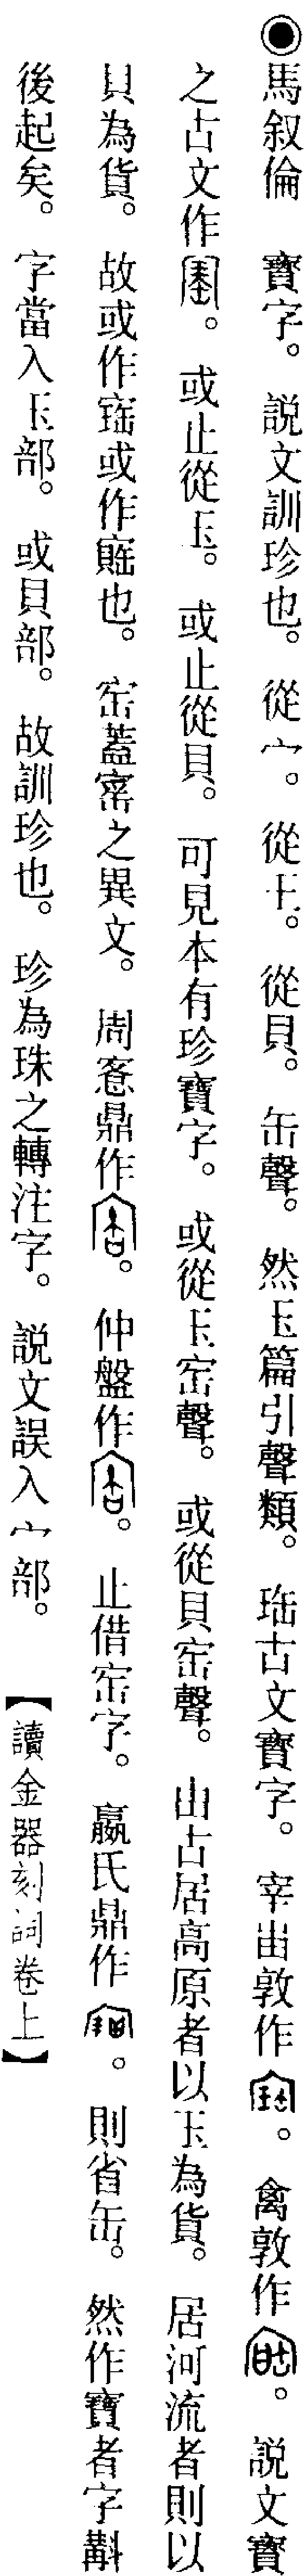 ◉馬叙倫　寶字。説文訓珍也。從宀。從王。從貝。缶聲。然玉篇引聲類。珤古文寶字。宰甶敦作。禽敦作。説文寶
之古文作。或止從玉。或止從貝。可見本有珍寶字。或從玉窑聲。或從貝窑聲。山古居高原者以玉為貨。居河流者則以
貝為貨。故或作或作也。窑蓋之異文。周窓鼎作。仲盤作。止借窑字。嬴氏鼎作。則省缶。然作寶者字
後起矣。字當入玉部。或貝部。故訓珍也。珍為珠之轉注字。説文誤入宀部。【讀金器刻詞卷上】